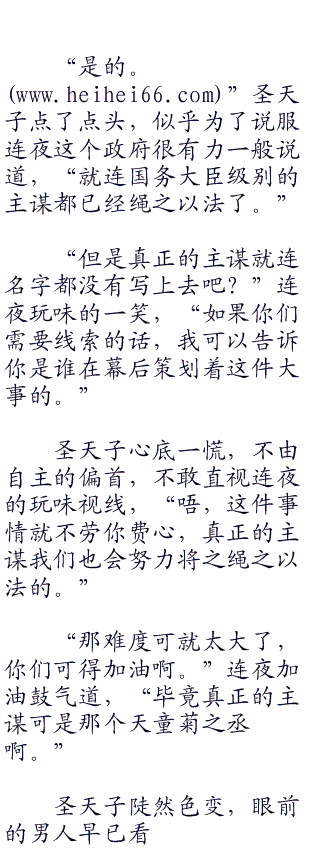 “是的。
(www.heihei66.com)”圣天
子点了点头，似乎为了说服
连夜这个政府很有力一般说
道，“就连国务大臣级别的
主谋都已经绳之以法了。”
“但是真正的主谋就连
名字都没有写上去吧？”连
夜玩味的一笑，“如果你们
需要线索的话，我可以告诉
你是谁在幕后策划着这件大
事的。”
圣天子心底一慌，不由
自主的偏首，不敢直视连夜
的玩味视线，“唔，这件事
情就不劳你费心，真正的主
谋我们也会努力将之绳之以
法的。”
“那难度可就太大了，
你们可得加油啊。”连夜加
油鼓气道，“毕竟真正的主
谋可是那个天童菊之丞
啊。”
圣天子陡然色变，眼前
的男人早已看